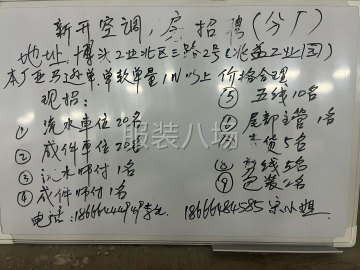 新开空调房招聘(分厂)
地址,博头工业北区三路2号(兆益工业园)
本厂亚马逊单,单数单量1000以上价格合理
现招:
① 流水车位20名
② 成件车位20名
③ 流水师付1名
④ 成件师付1名
⑤ 五线10名
尾部主管1名
查货5名
⑧ 剪线5名
⑨ 包装2名
电话:18666444949李生
18666484585宋小姐
服装八场